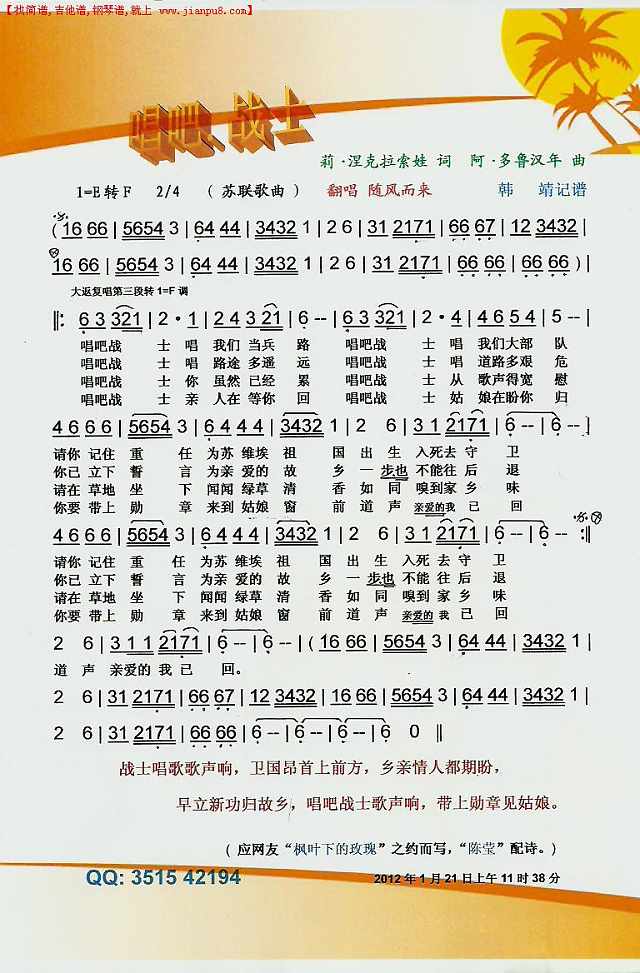 【找简谱,吉他谱,钢琴谱,就上 www.jianpu8.com】
唱吧、战士
莉·涅克拉索娃 词 阿·多鲁汉年 曲
1=E 转 F 2/4 （苏联歌曲） 翻唱 随风而来 韩 靖记谱
( 16 66 | 5654 3 | 64 44 | 3432 1 | 2 6 | 31 2171 | 66 67 | 12 3432 |
16 66 | 5654 3 | 64 44 | 3432 1 | 2 6 | 31 2171 | 66 66 | 66 66 ) |
大返复唱第三段转 1=F 调
‖: 6 3 321 | 2 · 1 | 2 4 3 21 | 6 -- | 6 3 321 | 2 · 4 | 4 6 5 4 | 5 -- |
唱吧战 士 唱 我们 当兵 路 唱吧战 士 唱 我们大部 队
唱吧战 士 唱 路途 多遥 远 唱吧战 士 唱 道路多艰 危
唱吧战 士 你 虽然 已经 累 唱吧战 士 从 歌声得宽 慰
唱吧战 士 亲 人在 等你 回 唱吧战 士 姑 娘在盼你 归
4 6 6 6 | 5654 3 | 6 4 4 4 | 3432 1 | 2 6 | 3 1 2171 | 6 -- | 6 -- ]
请你 记住 重 任 为苏 维埃 祖 国 出 生 入死去 守 卫
你已 立下 誓 言 为亲 爱的 故 乡 一 步也 不能往 后 退
请在 草地 坐 下 闻闻 绿草 清 香 如 同 嗅到家 乡 味
你要 带上 勋 章 来到 姑娘 窗 前 道 声 亲爱的我 已 回
4 6 6 6 | 5654 3 | 6 4 4 4 | 3432 1 | 2 6 | 3 1 2171 | 6 -- | 6 -- :‖
请你 记住 重 任 为苏 维埃 祖 国 出 生 入死去 守 卫
你已 立下 誓 言 为亲 爱的 故 乡 一 步也 不能往 后 退
请在 草地 坐 下 闻闻 绿草 清 香 如 同 嗅到家 乡 味
你要 带上 勋 章 来到 姑娘 窗 前 道 声 亲爱的 我 已 回
2 6 | 3 1 1 2171 | 6 -- | 6 -- | ( 16 66 | 5654 3 | 64 44 | 3432 1 |
道 声 亲爱的 我 已 回。
2 6 | 31 2171 | 66 67 | 12 3432 | 16 66 | 5654 3 | 64 44 | 3432 1 |
2 6 | 31 2171 | 66 66 | 6 -- | 6 -- | 6 -- | 6 0 ‖
战士唱歌歌声响，卫国昂首上前方，乡亲情人都期盼，
早立新功归故乡，唱吧战士歌声响，带上勋章见姑娘。
（应网友“枫叶下的玫瑰”之约而写，“陈莹”配诗。）
QQ: 3515 42194 2012 年 1 月 21 日上午 11 时 38 分